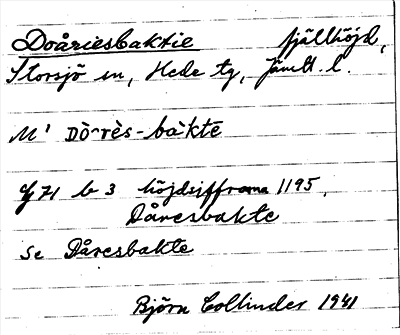 Doåriesbaktie fjällhöjd,
Storsjö sn, Hede tg, Jämtl. l.
M' Dò̄rès-bàkte
Gf 71 b 3 höjdsiffrorna 1195,
Dåresbakte
Se Dåresbakte
Björn Collinder 1941